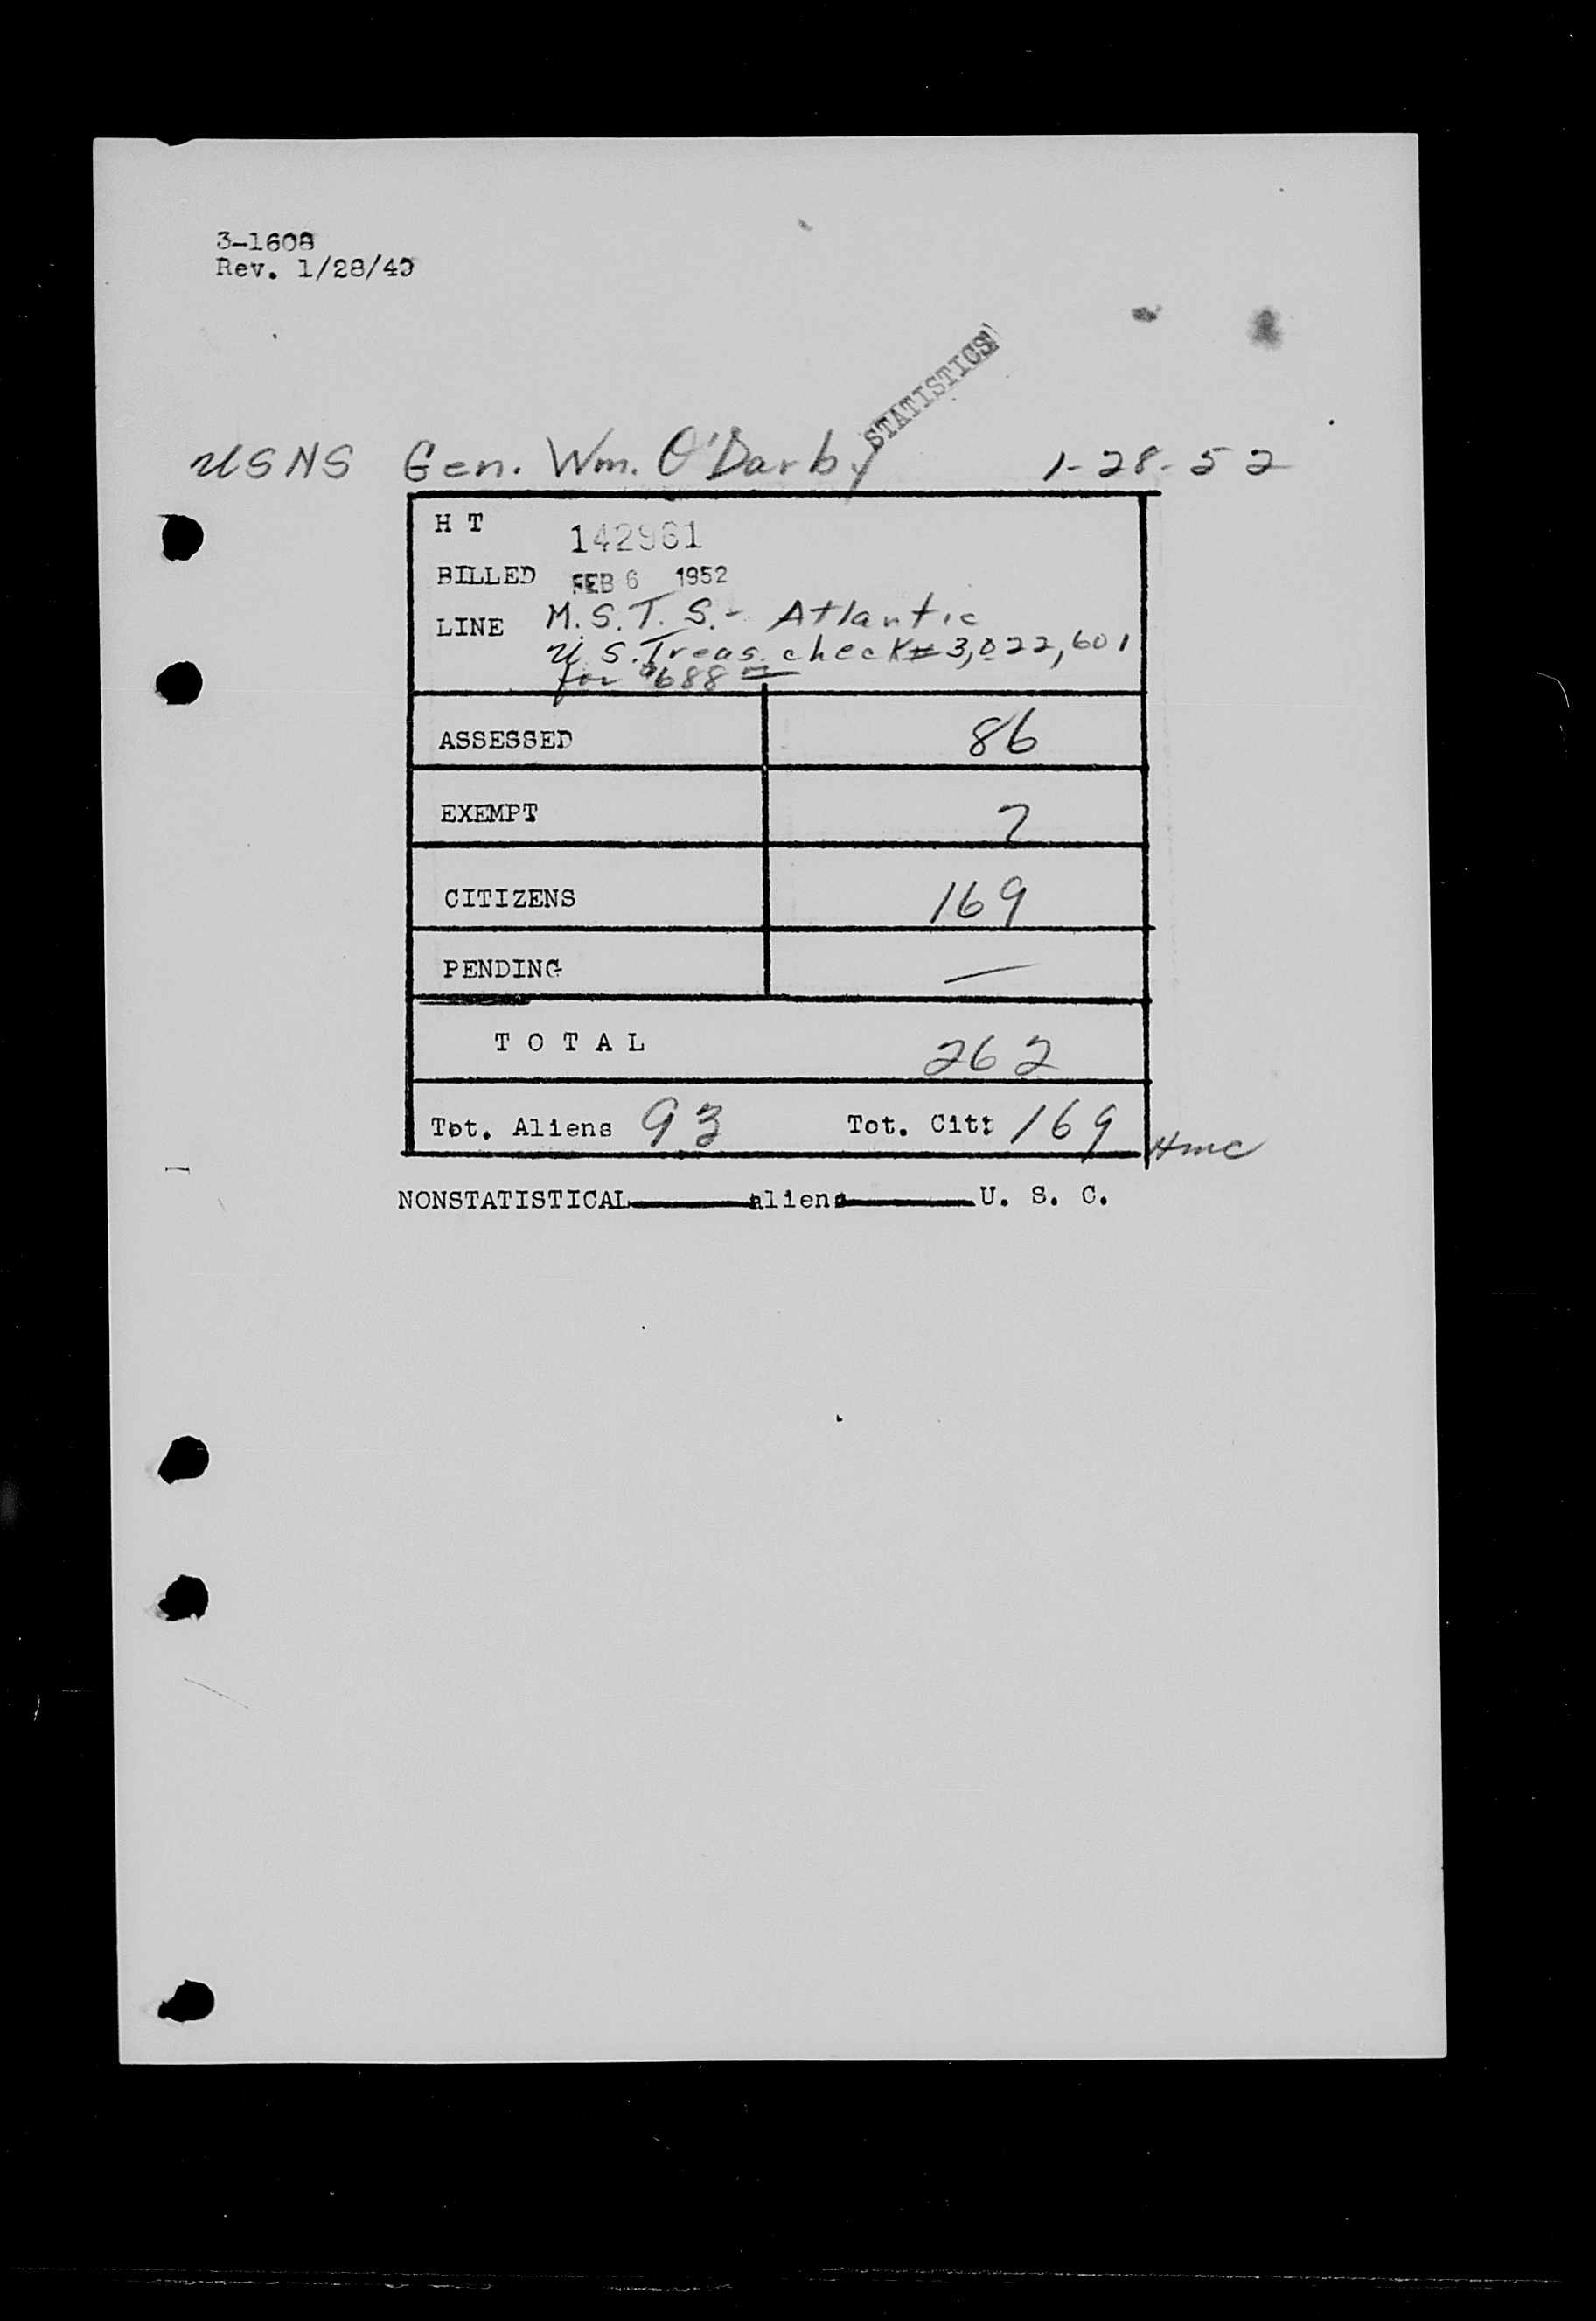 3-1608
Rev. 1/28/49
STATISTICS
USNS Gen. Wm. O'Darby 1-28-52
H T 142961
BILLED FEB 6 1952
LINE M.S.T.S.- Atlantic
U.S. Treas. check# 3,022,601
for $688 00
ASSESSED 86
EXEMPT 7
CITIZENS 169
PENDING —
T O T A L 262
Tot. Aliens 93 Tot. Cit: 169 HMC
NONSTATISTICAL aliens U. S. C.